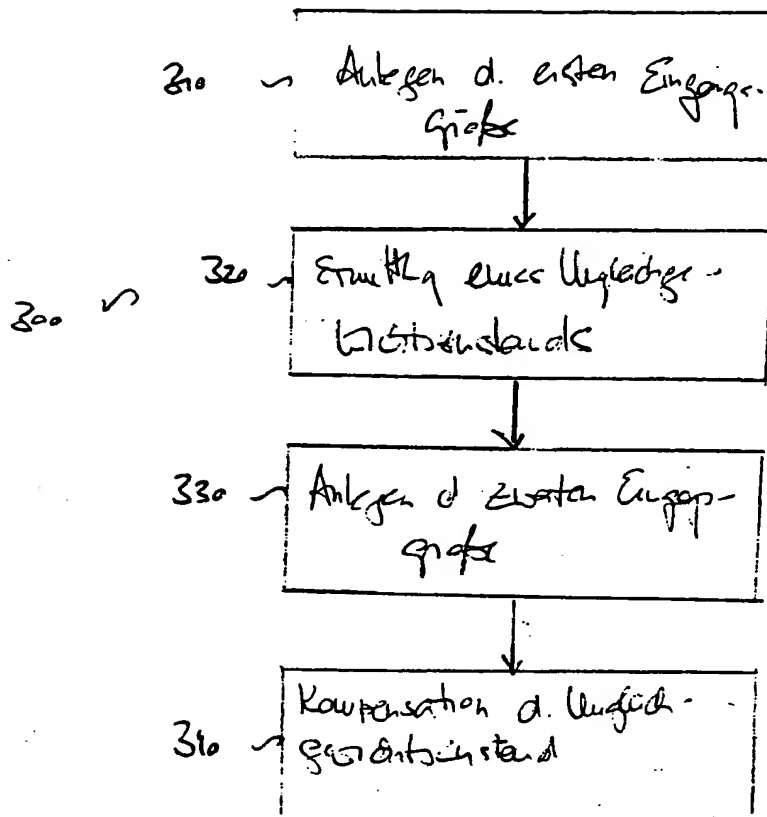 310 Anlegen d. ersten Eingangs-
größe
320 Ermittlg eines Ungleichge-
wichtszustands
300
330 Anlegen d zweiten Eingangs-
größe
Kompensation d. Ungleich-
340 gewichtszustand